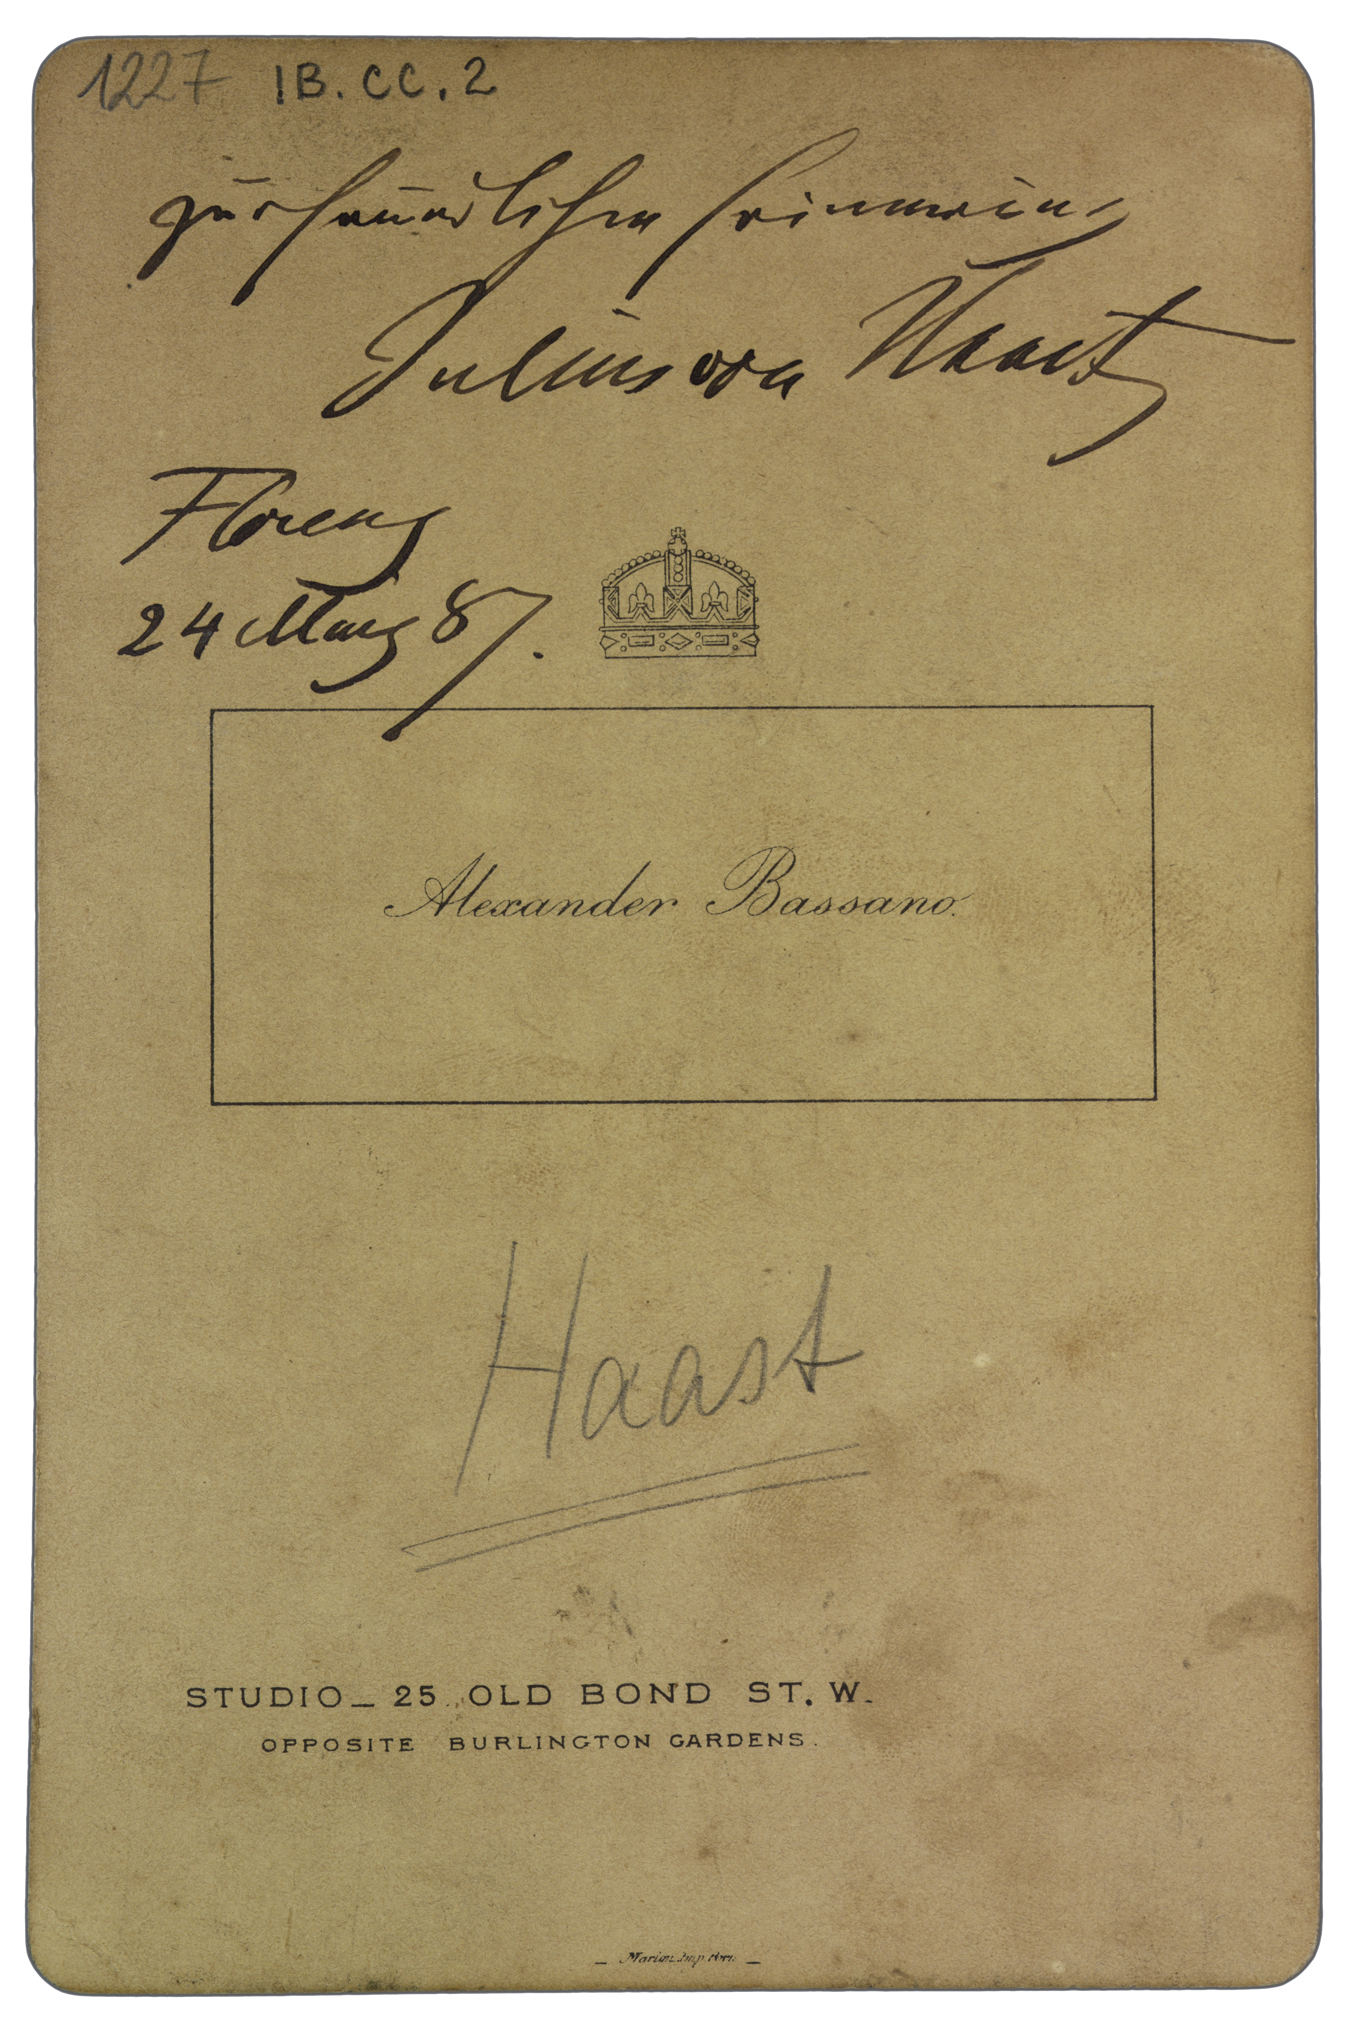 1227 IB.CC.2
zur freundlichen Erinnerung
Julius von Haast
Florenz
24 März 87.
Alexander Bassano.
Haast
STUDIO_ 25 OLD BOND ST. W.
OPPOSITE BURLINGTON GARDENS.
_ Marion Imp. _